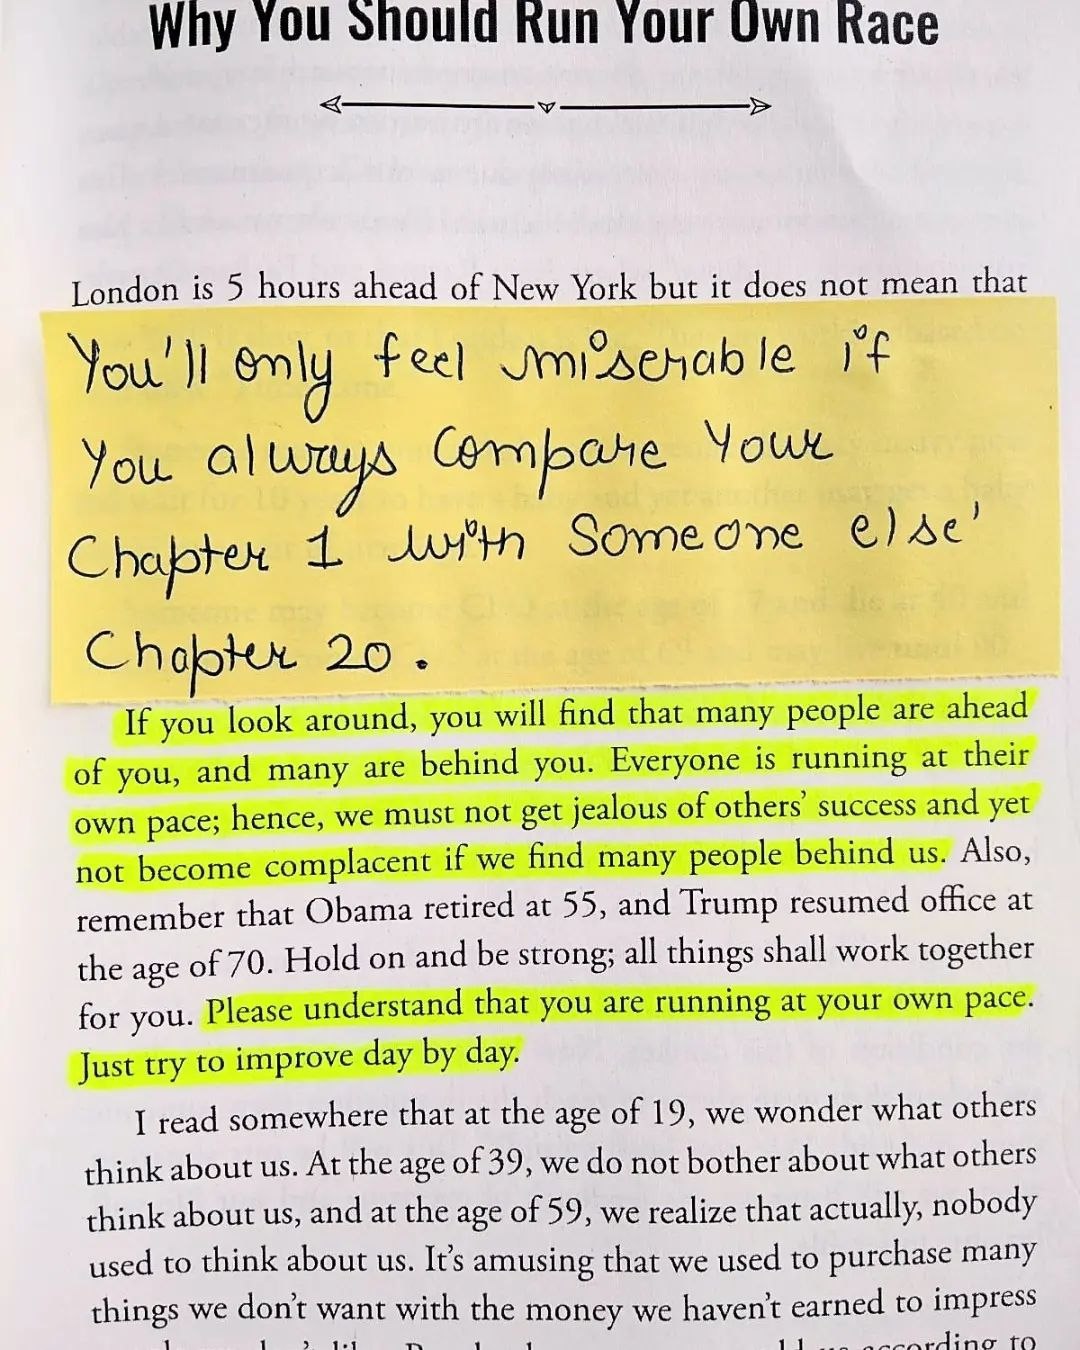 Why You Should Run Your Own Race
London is 5 hours ahead of New York but it does not mean that
You'll only feel miserable if
You always Compare Your
Chapter 1 with Someone else'
Chapter 20.
If you look around, you will find that many people are ahead
of you, and many are behind you. Everyone is running at their
own pace; hence, we must not get jealous of others' success and yet
not become complacent if we find many people behind us. Also,
remember that Obama retired at 55, and Trump resumed office at
the age of 70. Hold on and be strong; all things shall work together
for you. Please understand that you are running at your own pace.
Just try to improve day by day.
I read somewhere that at the age of 19, we wonder what others
think about us. At the age of 39, we do not bother about what others
think about us, and at the age of 59, we realize that actually, nobody
used to think about us. It's amusing that we used to purchase many
things we don't want with the money we haven't earned to impress
according to